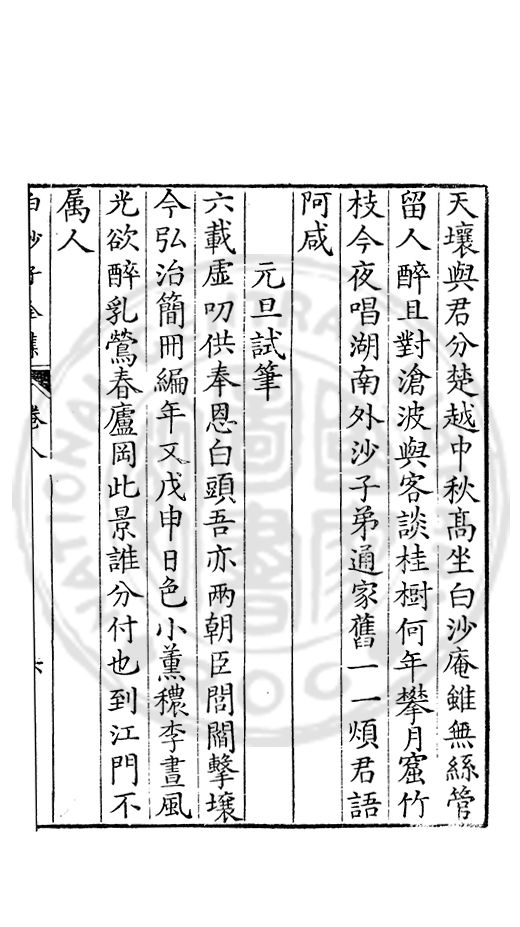 天壤與君分楚越中秋髙坐白沙庵雖無絲管
留人醉且對滄波與客談桂樹何年攀月窟竹
枝今夜唱湖南外沙子弟通家舊一一煩君語
阿咸
元旦試筆
六載虛叨供奉恩白頭吾亦兩朝臣閭閻擊壤
今弘治簡冊編年又戊申日色小薰穠李晝風
光欲醉乳鶯春廬岡此景誰分付也到江門不
属人
白沙子全集 卷八